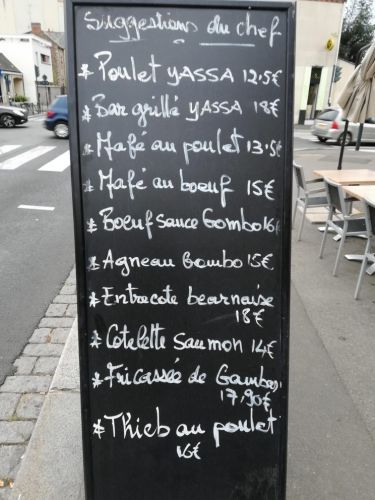 Suggestions du chef
* Poulet YASSA 12,5€
* Bar grillé YASSA 18€
* Mafé au poulet 13.5€
* Mafé au boeuf 15€
* Boeuf sauce Gombo 16€
* Agneau Gombo 15€
* Entrecote bearnaise
18€
* Cotelette saumon 14€
* Fricassée de Gambas
17,90€
* Thieb au poulet
16€